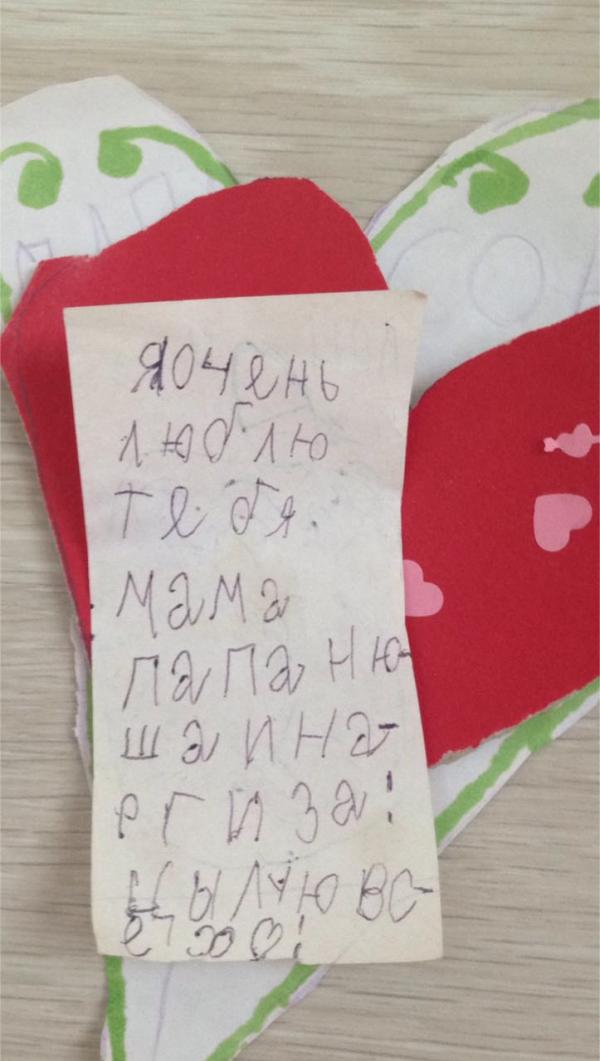 яочень
люблю
тебя
мама
папа ню-
ша и на-
ргиза!
цылую вс-
ех!